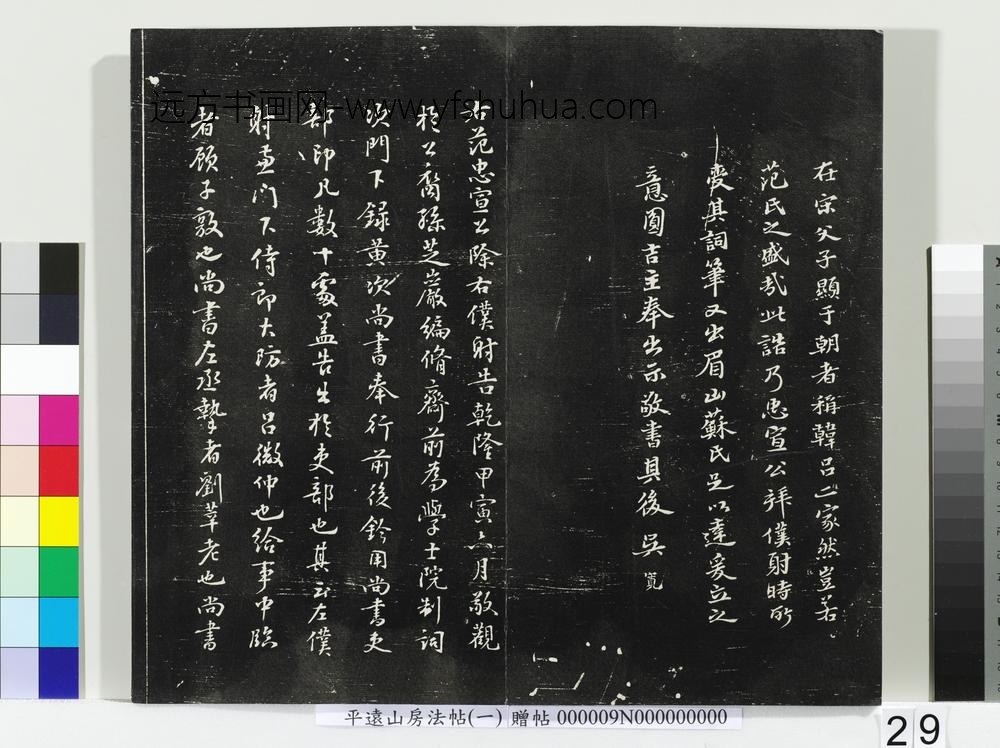 在宗父子顯于朝者稱韓呂二家然豈若
范氏之盛哉此誥乃忠宣公拜僕射時所
受其詞筆又出眉山蘇氏足以達爰立之
意圓吉主奉出示敬書其後 吳寬
右范忠宣公除右僕射告乾隆甲寅六月敬觀
於公裔孫芝巖編脩齋前為學士院制詞
次門下錄黃次尚書奉行前後鈐用尚書吏
部印凡數十處蓋告出於吏部也其云左僕
射兼門下侍郎大防者呂微仲也給事中臨
者顧子敦也尚書左丞摯者劉莘老也尚書
远方书画网-www.yfshuhua.com
平遠山房法帖(一) 贈帖 000009N000000000
29